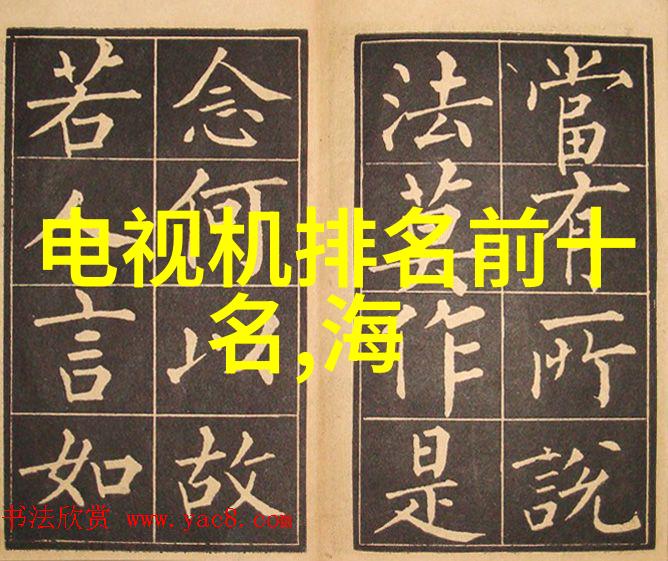 电视机排名前十
名,海
當有所說
法莫作是
念何以故
若人言如
书法欣赏 www.yac8.com